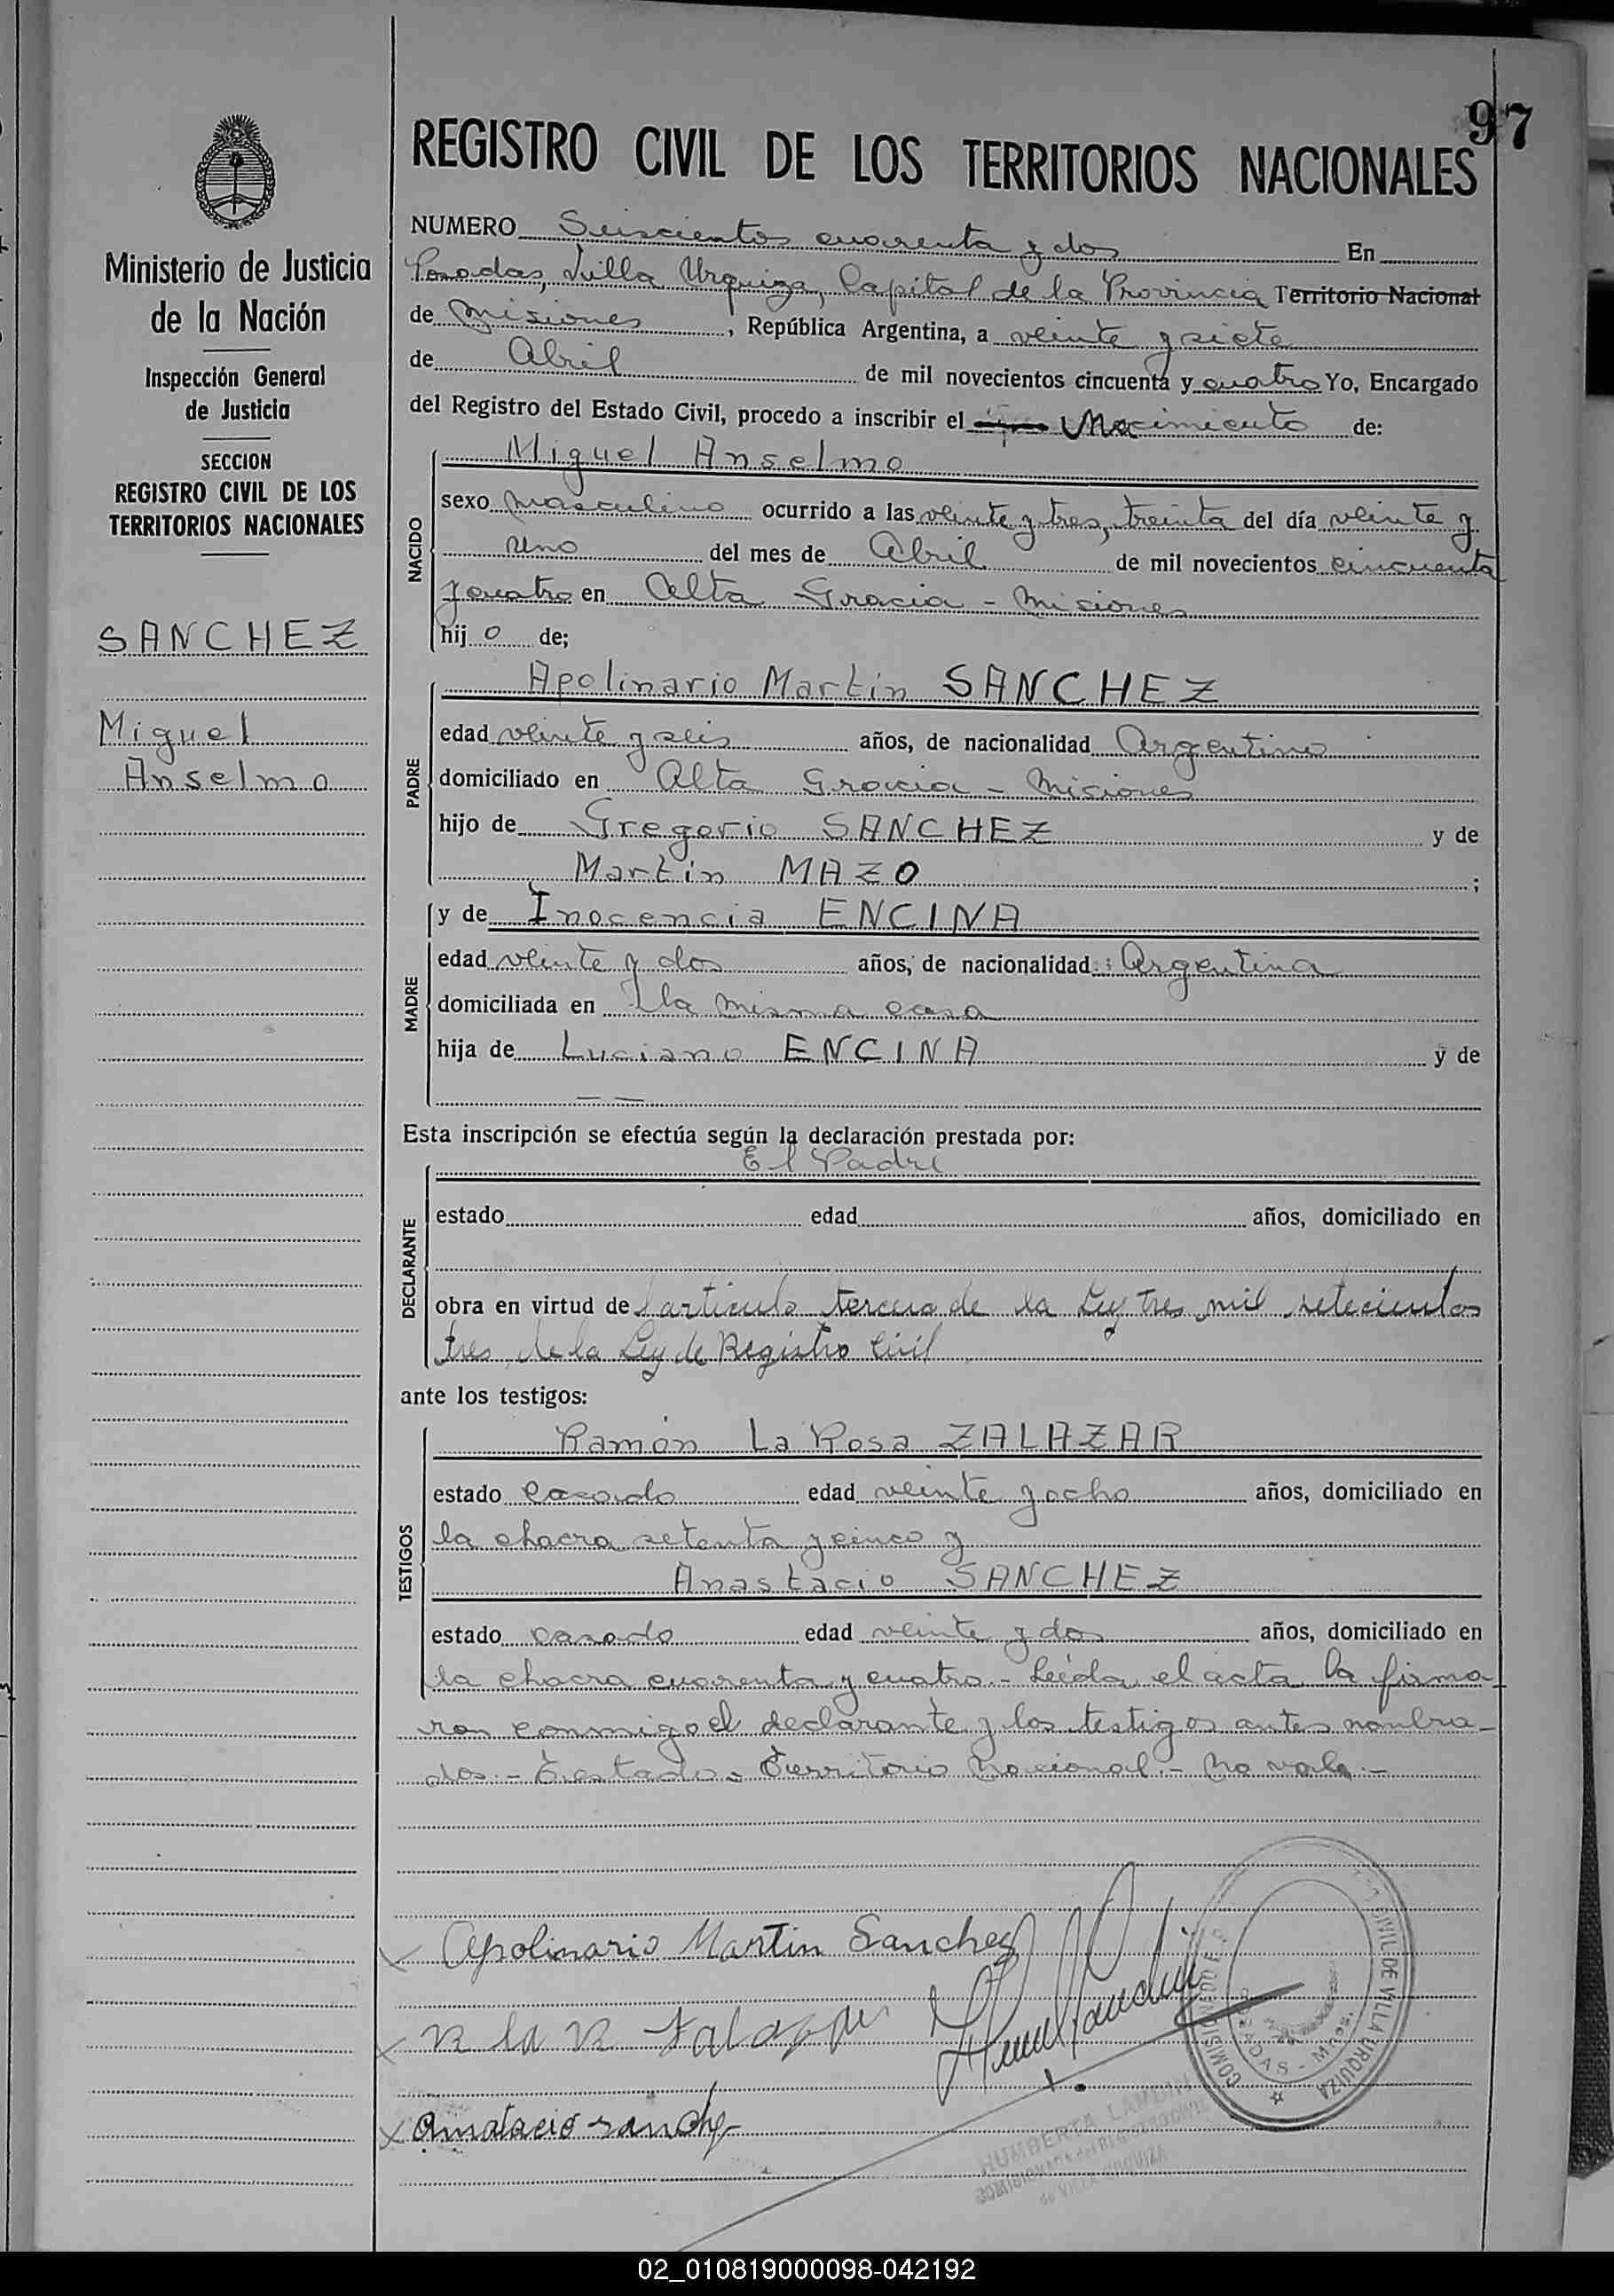 97
REGISTRO CIVIL DE LOS TERRITORIOS NACIONALES
Ministerio de Justicia
de la Nación
Inspección General
de Justicia
SECCION
REGISTRO CIVIL DE LOS
TERRITORIOS NACIONALES
SANCHEZ
Miguel
Anselmo
NUMERO Seiscientos cuarenta y dos En
Posadas, Villa Urquiza, Capital de la Provincia Territorio Nacional
de Misiones, República Argentina, a veinte y siete
de Abril de mil novecientos cincuenta y cuatro Yo, Encargado
del Registro del Estado Civil, procedo a inscribir el Nacimiento de:
NACIDO
Miguel Anselmo
sexo masculino ocurrido a las veinte y tres, treinta del día veinte y
uno del mes de Abril de mil novecientos cincuenta
y cuatro en Alta Gracia - Misiones
hijo de;
PADRE
Apolinario Martin SANCHEZ
edad veinte y seis años, de nacionalidad Argentino
domiciliado en Alta Gracia - Misiones
hijo de Gregorio SANCHEZ y de
Martin MAZO ;
MADRE
y de Inocencia ENCINA
edad veinte y dos años, de nacionalidad: Argentina
domiciliada en la misma casa
hija de Luciano ENCINA y de
— —
Esta inscripción se efectúa según la declaración prestada por:
DECLARANTE
El Padre
estado edad años, domiciliado en
obra en virtud del articulo tercero de la Ley tres mil setecientos
tres de la Ley de Registro Civil
ante los testigos:
TESTIGOS
Ramón La Rosa ZALAZAR
estado casado edad veinte y ocho años, domiciliado en
la chacra setenta y cinco y
Anastacio SANCHEZ
estado casado edad veinte y dos años, domiciliado en
la chacra cuarenta y cuatro.- Leída el acta la firma-
ron conmigo el declarante y los testigos antes nombra-
dos.- Testado= Territorio Nacional.- No vale.-
x Apolinario Martin Sanchez
x R la R Salazar
x Anastacio Sanchez
CIVIL DE VILLA URQUIZA
POSADAS - Mnes.
HUMBERTA
COMISIONADA del REGISTRO CIVIL
de VILLA URQUIZA
02_010819000098-042192